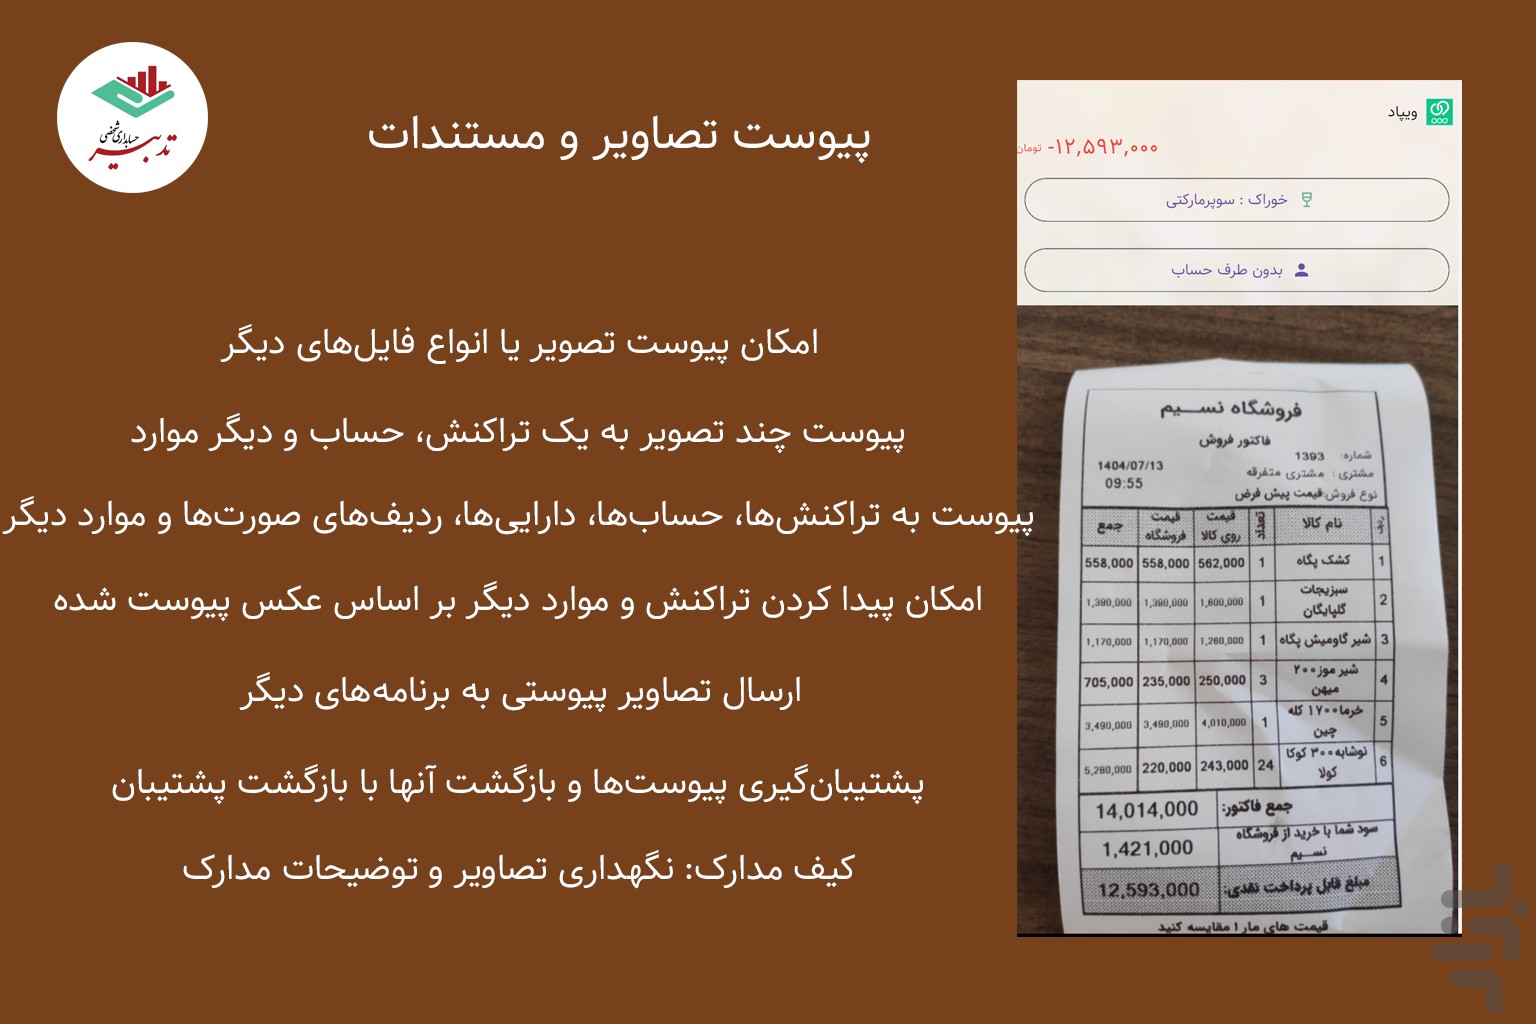 حسابداری شخصی
تدبیر
پیوست تصاویر و مستندات
امکان پیوست تصویر یا انواع فایل‌های دیگر
پیوست چند تصویر به یک تراکنش، حساب و دیگر موارد
پیوست به تراکنش‌ها، حساب‌ها، دارایی‌ها، ردیف‌های صورت‌ها و موارد دیگر
امکان پیدا کردن تراکنش و موارد دیگر بر اساس عکس پیوست شده
ارسال تصاویر پیوستی به برنامه‌های دیگر
پشتیبان‌گیری پیوست‌ها و بازگشت آنها با بازگشت پشتیبان
کیف مدارک: نگهداری تصاویر و توضیحات مدارک
ویپاد
-۱۲,۵۹۳,۰۰۰ تومان
خوراک : سوپرمارکتی
بدون طرف حساب
فروشگاه نسیم
فاکتور فروش
شماره: 1393
1404/07/13
مشتری : مشتری متفرقه
09:55
نوع فروش:قیمت پیش فرض
ردیف نام کالا تعداد قیمت روی کالا قیمت فروشگاه جمع
1 کشک پگاه 1 562,000 558,000 558,000
2 سبزیجات گلپایگان 1 1,600,000 1,390,000 1,390,000
3 شیر گاومیش پگاه 1 1,260,000 1,170,000 1,170,000
4 شیر موز۲۰۰ میهن 3 250,000 235,000 705,000
5 خرما۱۷۰۰ کله چین 1 4,010,000 3,490,000 3,490,000
6 نوشابه۳۰۰ کوکا کولا 24 243,000 220,000 5,280,000
جمع فاکتور: 14,014,000
سود شما با خرید از فروشگاه نسیم 1,421,000
مبلغ قابل پرداخت نقدی: 12,593,000
قیمت های ما را مقایسه کنید
بازار